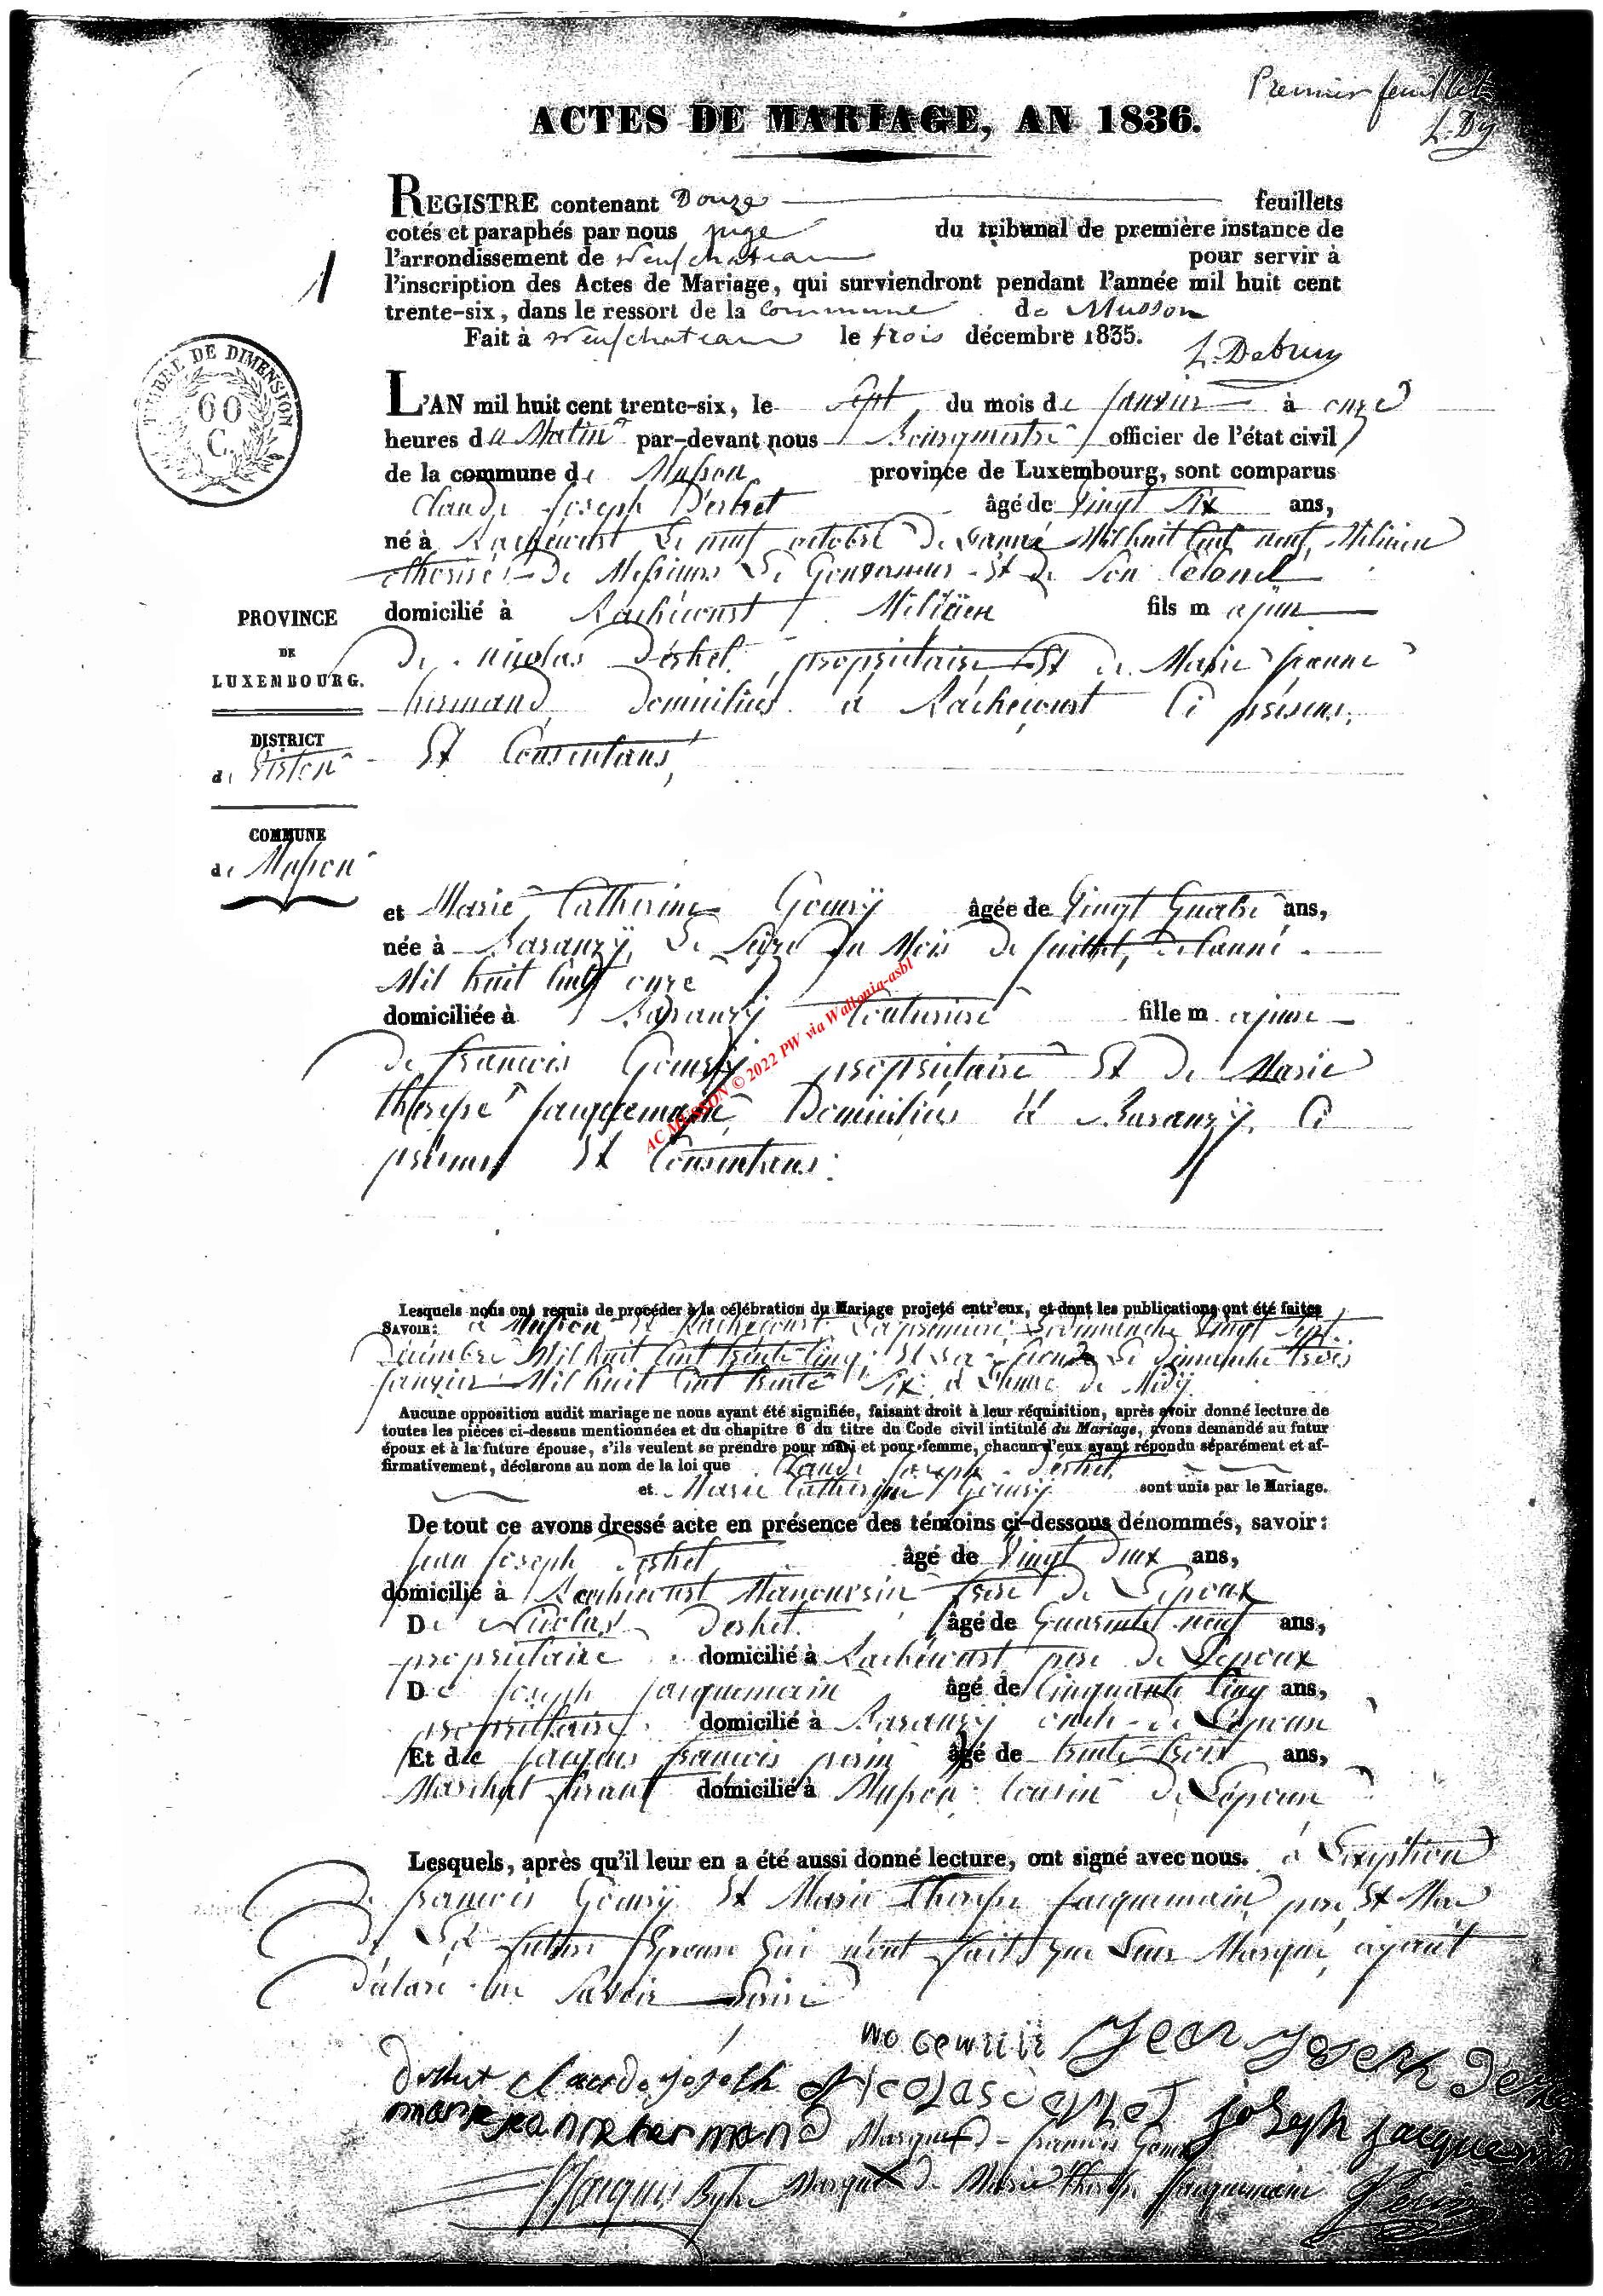 Premier feuillet
L. Dy
ACTES DE MARIAGE, AN 1836.
REGISTRE contenant Douze feuillets
cotés et paraphés par nous juge du tribunal de première instance de
l'arrondissement de Neufchateau pour servir à
l'inscription des Actes de Mariage, qui surviendront pendant l'année mil huit cent
trente-six, dans le ressort de la Commune de Musson
Fait à Neufchateau le trois décembre 1835.
1
TIMBRE DE DIMENSION
60
C.
L'AN mil huit cent trente-six, le Sept du mois de Janvier à onze
heures du Matin par-devant nous Bourgmestre officier de l'état civil
de la commune de Musson province de Luxembourg, sont comparus
Claude Joseph Deshet âgé de Vingt Six ans,
né à Rachécourt Le neuf octobre De Lanné Mil huit Cent neuf, Milicien
de Messieurs Le Gouverneur Et de Son Colonel
domicilié à Rachécourt Miliçien fils majeur
De nicolas Deshet, propriétaire Et de Marie Jeanne
hermand Domiciliés a Rachecourt Ci présens,
Et Consentans,
PROVINCE
DE
LUXEMBOURG.
DISTRICT
de Virton
COMMUNE
de Musson
et Marie Catherine Goury âgée de Vingt Quatre ans,
née à Baranzÿ, Le Seize Du Mois de Juillet, De Lanné
Mil huit Cent onze
domiciliée à Baranzÿ Couturière fille majeure
De francois Gourÿ propriétaire Et De Marie
therese Jacquemain, Domiciliés à Baranzÿ, Ci
présens Et Consentans.
AC MUSSON © 2022 PW via Wallonia-asbl
Lesquels nous ont requis de procéder à la célébration du Mariage projeté entr'eux, et dont les publications ont été faites
SAVOIR: a Musson Et Rachécourt La premiere Le Dimanche Vingt Sept
Décembre Mil huit Cent trente Cinq, Et La Seconde Le Dimanche trois
Janvier Mil huit Cent trente Six a Lheure De Midÿ
Aucune opposition audit mariage ne nous ayant été signifiée, faisant droit à leur réquisition, après avoir donné lecture de
toutes les pièces ci-dessus mentionnées et du chapitre 6 du titre du Code civil intitulé du Mariage, avons demandé au futur
époux et à la future épouse, s'ils veulent se prendre pour mari et pour femme, chacun d'eux ayant répondu séparément et af-
firmativement, déclarons au nom de la loi que Claude Joseph Deshet
et Marie Catherine Gourÿ sont unis par le Mariage.
De tout ce avons dressé acte en présence des témoins ci-dessous dénommés, savoir:
Jean Joseph Deshet âgé de Vingt Deux ans,
domicilié à Rachécourt frère De Lépoux
De Nicolas Deshet. âgé de Quarante neuf ans,
propriétaire domicilié à Rachécourt pere De Lépoux
De Joseph Jacquemain âgé de Cinquante Cinq ans,
propriétaire domicilié à Baranzÿ oncle De Lépouse
Et de Jacques francois perin âgé de trente trois ans,
Marchal ferant domicilié à Musson Cousin De Lépouse
Lesquels, après qu'il leur en a été aussi donné lecture, ont signé avec nous. à Lexeption
De francois Gourÿ Et Marie Therese Jacquemain pere Et Mere
De La future Epouse Qui n'ont fait que Leur Marque, ayant
Déclaré ne Savoir Ecrire
Jean Joseph Deshet
Deshet Claude joseph nicolas deshet
marie jeanne hermand Marque De francois Goury joseph jacquemain
Marque De Marie Therese Jacquemain Perin